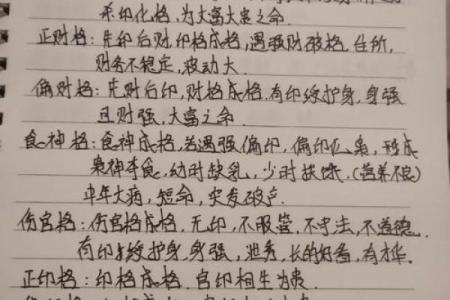 杀印化格,为大富大贵之命.
正财格:先印后财,印格成格,遇强财破格,住所,
财务不稳定,波动大.
偏财格:先财后印,财格成格,有印绶护身,身强
且财强,大富之命.
食神格:食神成格,若遇强偏印,偏印化枭,形成
枭神夺食,幼时缺乳,少时扶饿,(营养不良)
中年大病,短命,突发破产.
伤官格:伤官格成格,无印,不服管,不守法,不道德.
有印绶护身,身强,优秀,长的好看,有才华.
正印格:印格成格.官印相生为贵